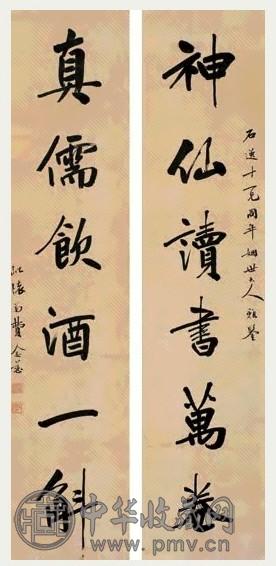 石蓮十兄同年姻世大人雅鑒
神仙讀書萬卷
真儒飲酒一斛
費念慈
中华收藏网
www.pmv.cn